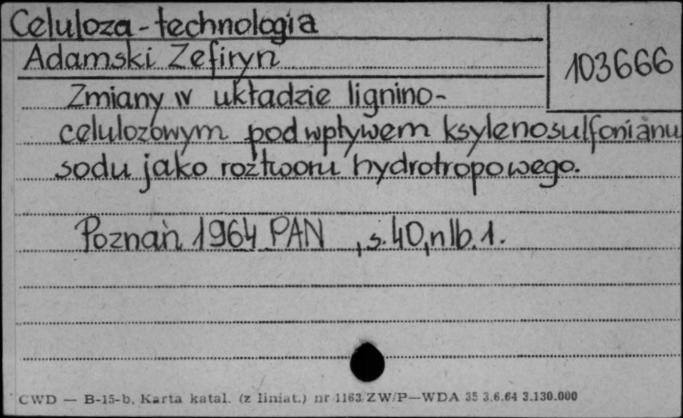 Celuloza - technologia
Adamski Zefiryn
103666
Zmiany w układzie lignino-
celulozowym pod wpływem ksylenosulfonianu
sodu jako roztworu hydrotropowego.
Poznań 1964 PAN , s. 40, nlb. 1.
CWD — B-15-b, Karta katal. (z liniat.) nr 1163 ZW/P—WDA 35 3.6.64 3.130.000